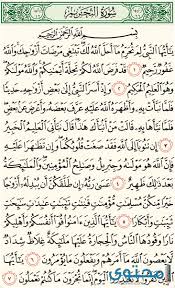 سُورَةُ التَّحْرِيمِ
بِسْمِ اللَّهِ الرَّحْمَٰنِ الرَّحِيمِ
يَٰٓأَيُّهَا النَّبِيُّ لِمَ تُحَرِّمُ مَآ أَحَلَّ اللَّهُ لَكَ تَبْتَغِي مَرْضَاتَ أَزْوَٰجِكَ وَاللَّهُ
غَفُورٌ رَّحِيمٌ ١ قَدْ فَرَضَ اللَّهُ لَكُمْ تَحِلَّةَ أَيْمَٰنِكُمْ وَاللَّهُ مَوْلَىٰكُمْ
وَهُوَ الْعَلِيمُ الْحَكِيمُ ٢ وَإِذْ أَسَرَّ النَّبِيُّ إِلَىٰ بَعْضِ أَزْوَٰجِهِ حَدِيثًا
فَلَمَّا نَبَّأَتْ بِهِ وَأَظْهَرَهُ اللَّهُ عَلَيْهِ عَرَّفَ بَعْضَهُ وَأَعْرَضَ عَنْ بَعْضٍ
فَلَمَّا نَبَّأَهَا بِهِ قَالَتْ مَنْ أَنْبَأَكَ هَٰذَا قَالَ نَبَّأَنِيَ الْعَلِيمُ الْخَبِيرُ
٣ إِنْ تَتُوبَآ إِلَى اللَّهِ فَقَدْ صَغَتْ قُلُوبُكُمَا وَإِنْ تَظَٰهَرَا عَلَيْهِ
فَإِنَّ اللَّهَ هُوَ مَوْلَىٰهُ وَجِبْرِيلُ وَصَٰلِحُ الْمُؤْمِنِينَ وَالْمَلَٰٓئِكَةُ
بَعْدَ ذَٰلِكَ ظَهِيرٌ ٤ عَسَىٰ رَبُّهُ إِنْ طَلَّقَكُنَّ أَنْ يُبْدِلَهُ أَزْوَٰجًا
خَيْرًا مِّنْكُنَّ مُسْلِمَٰتٍ مُّؤْمِنَٰتٍ قَٰنِتَٰتٍ تَٰٓئِبَٰتٍ عَٰبِدَٰتٍ سَٰٓئِحَٰتٍ
ثَيِّبَٰتٍ وَأَبْكَارًا ٥ يَٰٓأَيُّهَا الَّذِينَ ءَامَنُوا قُوٓا أَنْفُسَكُمْ وَأَهْلِيكُمْ
نَارًا وَقُودُهَا النَّاسُ وَالْحِجَارَةُ عَلَيْهَا مَلَٰٓئِكَةٌ غِلَاظٌ شِدَادٌ
لَّا يَعْصُونَ اللَّهَ مَآ أَمَرَهُمْ وَيَفْعَلُونَ مَا يُؤْمَرُونَ ٦ يَٰٓأَيُّهَا
الَّذِينَ كَفَرُوا لَا تَعْتَذِرُوا الْيَوْمَ إِنَّمَا تُجْزَوْنَ مَا كُنْتُمْ تَعْمَلُونَ ٧
محتوى